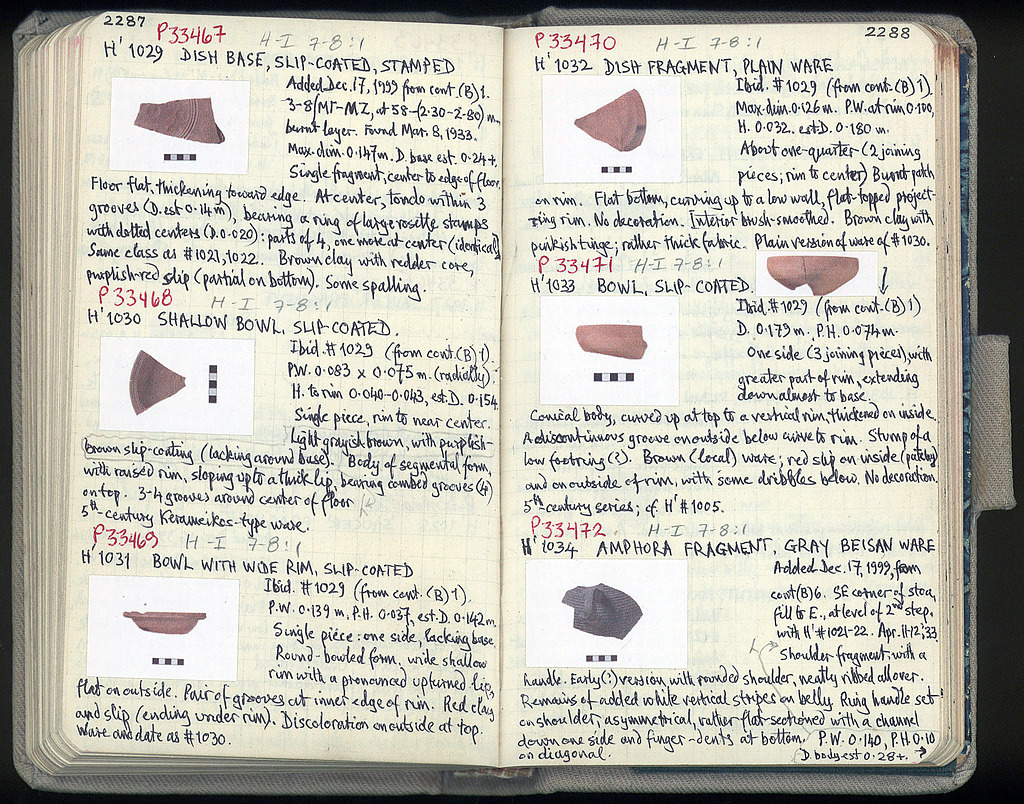 2287
P33467 H-I 7-8:1
H'1029 DISH BASE, SLIP-COATED, STAMPED
Added Dec. 17, 1999 from cont. (B) 1.
burnt layer. Found Mar. 8, 1933.
Max. dim. 0.147 m. D. base est. 0.24+.
Single fragment, center to edge of floor.
Floor flat, thickening toward edge. At center, tondo within 3
grooves (D. est 0.14 m), bearing a ring of large rosette stamps
with dotted centers (D. 0.020): parts of 4, one more at center (identical)
Same class as #1021, 1022. Brown clay with redder core,
purplish-red slip (partial on bottom). Some spalling.
P33468 H-I 7-8:1
H'1030 SHALLOW BOWL, SLIP-COATED.
Ibid. #1029 (from cont. (B) 1).
P.W. 0.083 x 0.075 m. (radially).
H. to rim 0.040-0.043, est. D. 0.154.
Single piece, rim to near center.
Light grayish brown, with purplish-
brown slip-coating (lacking around base). Body of segmental form,
with raised rim, sloping up to a thick lip, bearing combed grooves (4)
on top. 3-4 grooves around center of floor
5th-century Kerameikos-type ware.
P33469 H-I 7-8:1
H'1031 BOWL WITH WIDE RIM, SLIP-COATED
Ibid. #1029 (from cont. (B) 1).
P.W. 0.139 m. P.H. 0.037, est. D. 0.142 m.
Single piece: one side, lacking base.
Round-bowled form, wide shallow
rim with a pronounced upturned lip,
flat on outside. Pair of grooves at inner edge of rim. Red clay
and slip (ending under rim). Discoloration on outside at top.
Ware and date as #1030.
2288
P33470 H-I 7-8:1
H'1032 DISH FRAGMENT, PLAIN WARE
Ibid. #1029 (from cont. (B) 1).
Max. dim. 0.126 m. P.W. at rim 0.100,
H. 0.032. est D. 0.180 m.
About one-quarter (2 joining
pieces; rim to center) Burnt patch
on rim. Flat bottom, curving up to a low wall, flat-topped project-
ing rim. No decoration. Interior brush-smoothed. Brown clay with
purkish tinge; rather thick fabric. Plain version of ware of #1030.
P33471 H-I 7-8:1
H'1033 BOWL, SLIP-COATED.
Ibid. #1029 (from cont. (B) 1)
D. 0.179 m. P.H. 0.074 m.
One side (3 joining pieces), with
greater part of rim, extending
down almost to base.
Conical body, curved up at top to a vertical rim, thickened on inside.
A discontinuous groove on outside below curve to rim. Stump of a
low footring (?). Brown (local) ware; red slip on inside (patchy)
and on outside of rim, with some dribbles below. No decoration.
5th-century series; cf. H' #1005.
P33472 H-I 7-8:1
H'1034 AMPHORA FRAGMENT, GRAY BEISAN WARE
Added Dec. 17, 1999, from
cont (B) 6. SE corner of stoa,
fill to E., at level of 2nd step.
with H' #1021-22. Apr. 11-12, '33
Shoulder fragment with a
handle. Early (?) version with rounded shoulder, neatly ribbed all over.
Remains of added white vertical stripes on belly. Ring handle set
on shoulder, asymmetrical, rather flat-sectioned with a channel
down one side and finger-dents at bottom. P.W. 0.140, P.H. 0.10
on diagonal. D. body est 0.28+.